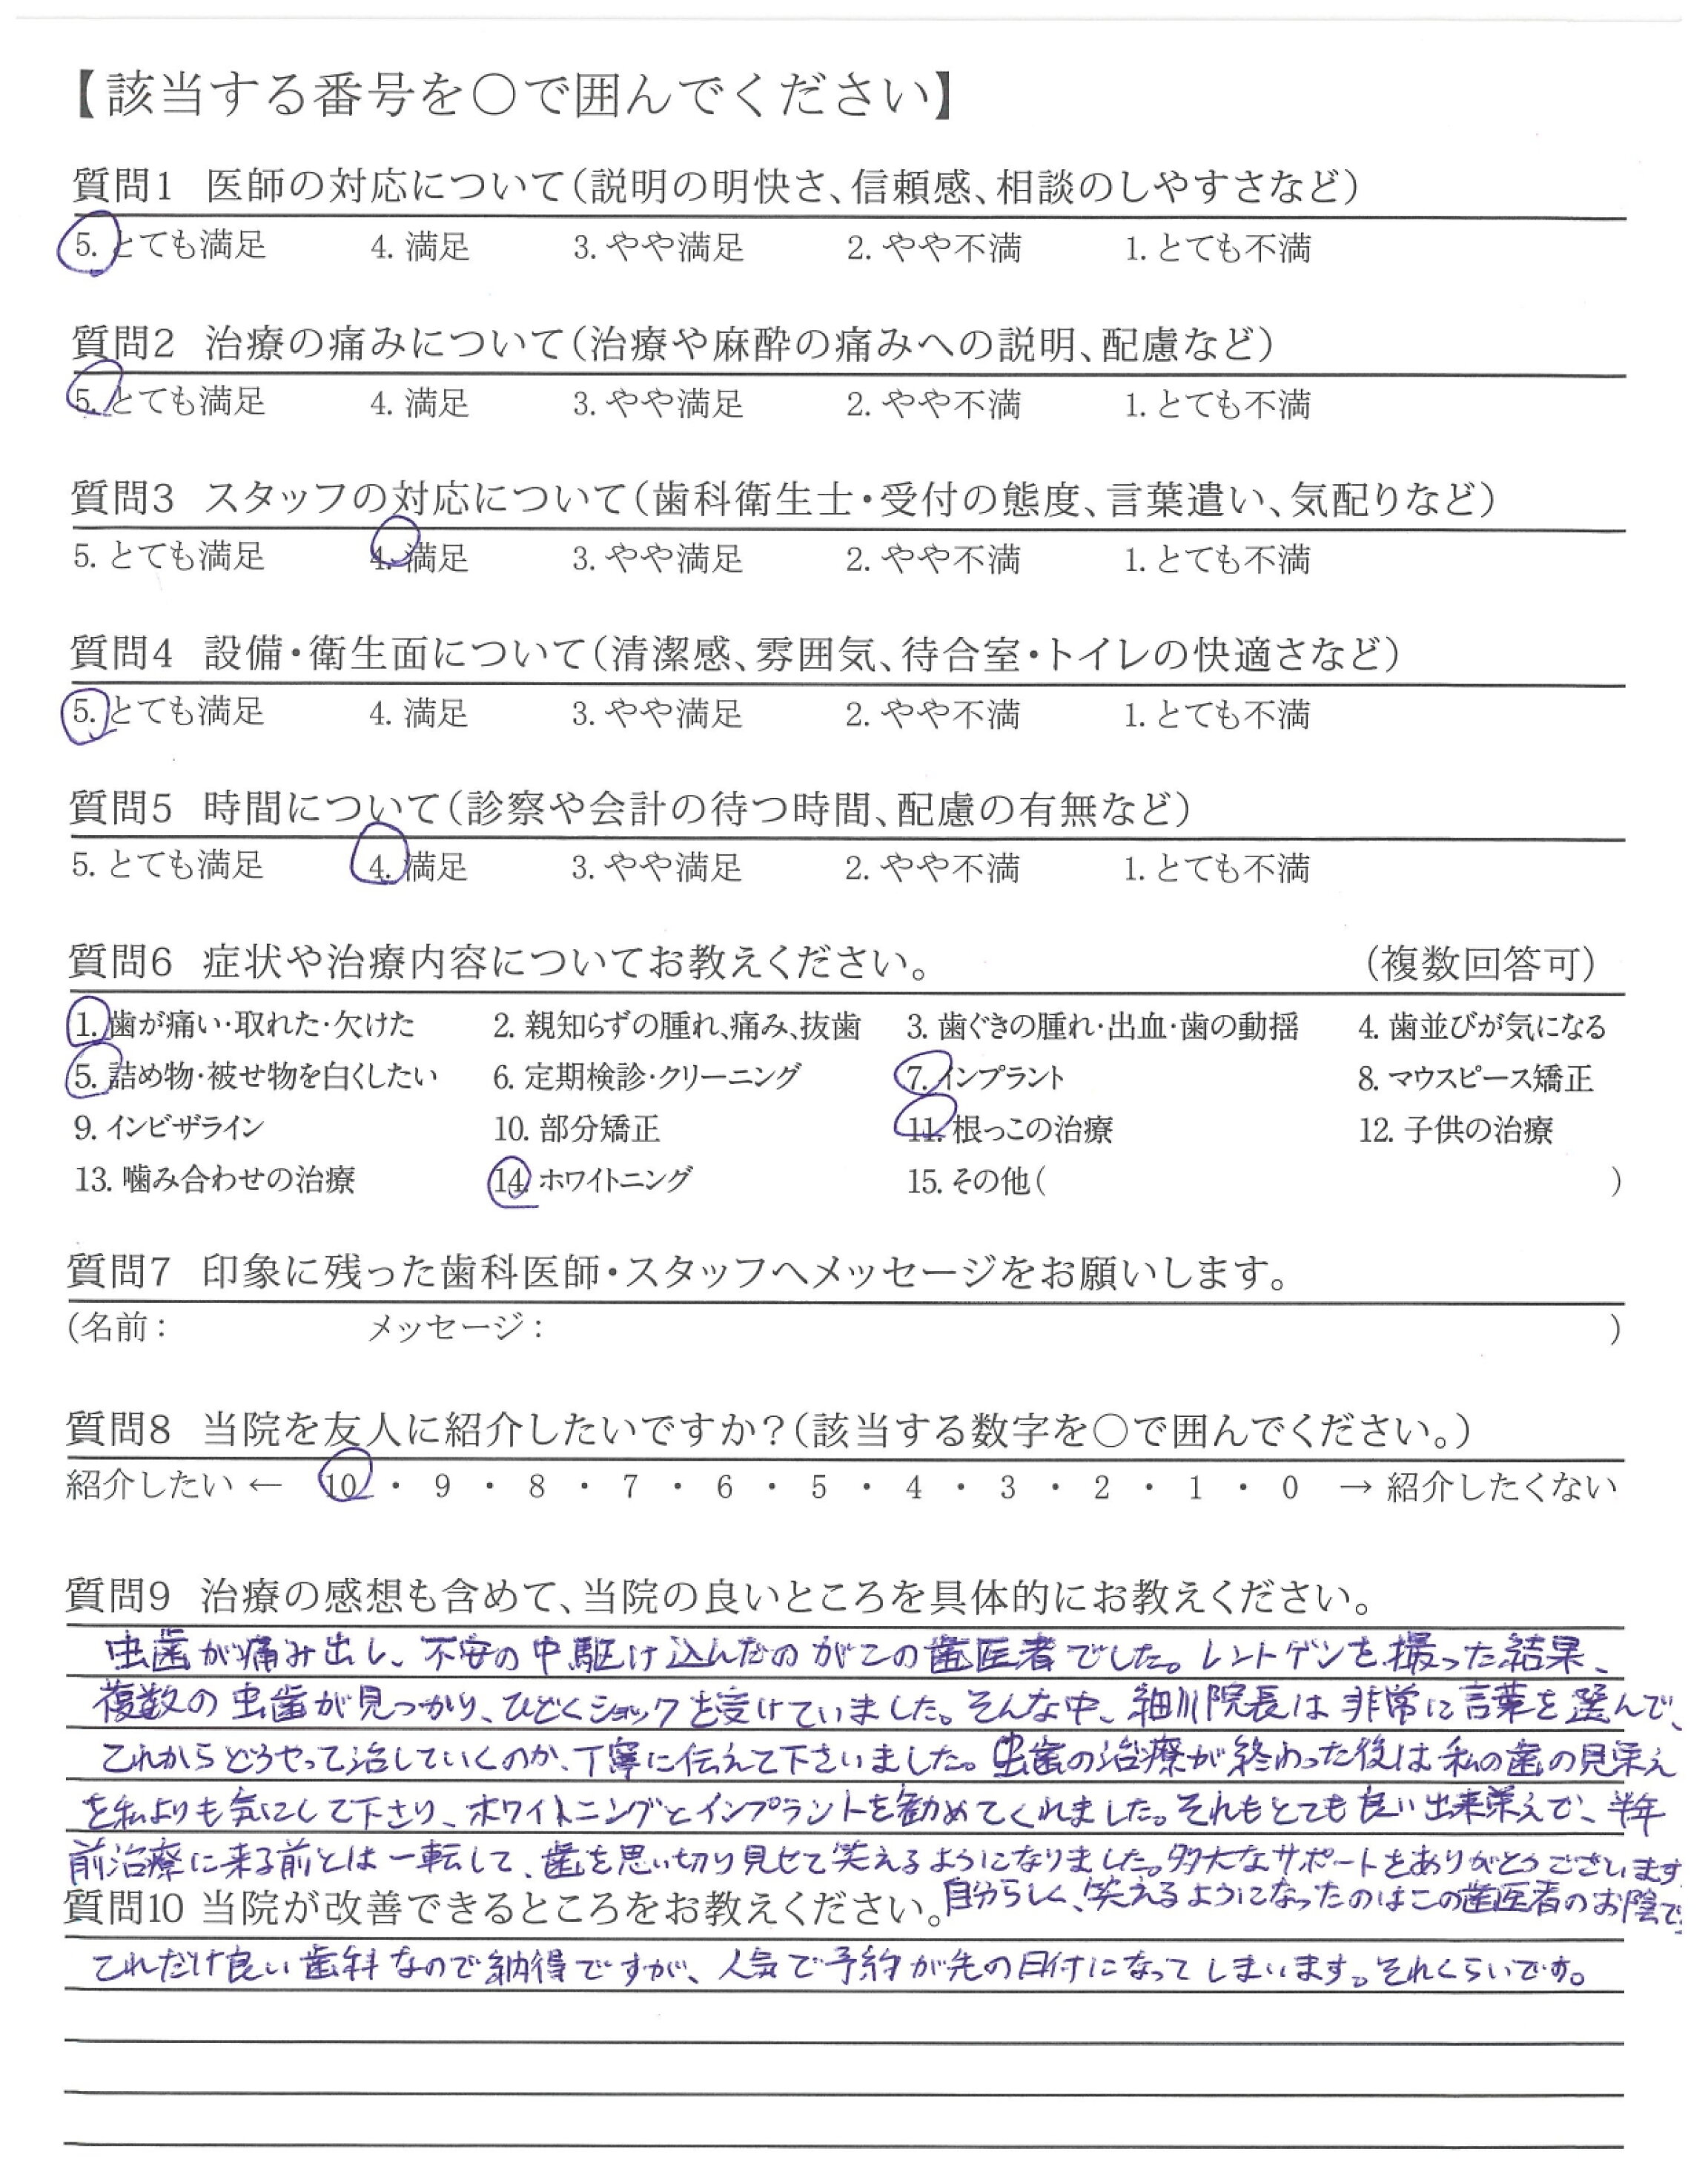 【該当する番号を○で囲んでください】
質問1 医師の対応について(説明の明快さ、信頼感、相談のしやすさなど)
5. とても満足 4. 満足 3. やや満足 2. やや不満 1. とても不満
質問2 治療の痛みについて(治療や麻酔の痛みへの説明、配慮など)
5. とても満足 4. 満足 3. やや満足 2. やや不満 1. とても不満
質問3 スタッフの対応について(歯科衛生士・受付の態度、言葉遣い、気配りなど)
5. とても満足 4. 満足 3. やや満足 2. やや不満 1. とても不満
質問4 設備・衛生面について(清潔感、雰囲気、待合室・トイレの快適さなど)
5. とても満足 4. 満足 3. やや満足 2. やや不満 1. とても不満
質問5 時間について(診察や会計の待つ時間、配慮の有無など)
5. とても満足 4. 満足 3. やや満足 2. やや不満 1. とても不満
質問6 症状や治療内容についてお教えください。 (複数回答可)
1. 歯が痛い・取れた・欠けた 2. 親知らずの腫れ、痛み、抜歯 3. 歯ぐきの腫れ・出血・歯の動揺 4. 歯並びが気になる
5. 詰め物・被せ物を白くしたい 6. 定期検診・クリーニング 7. インプラント 8. マウスピース矯正
9. インビザライン 10. 部分矯正 11. 根っこの治療 12. 子供の治療
13. 噛み合わせの治療 14. ホワイトニング 15. その他( )
質問7 印象に残った歯科医師・スタッフへメッセージをお願いします。
(名前： メッセージ： )
質問8 当院を友人に紹介したいですか？(該当する数字を○で囲んでください。)
紹介したい ← 10 ・ 9 ・ 8 ・ 7 ・ 6 ・ 5 ・ 4 ・ 3 ・ 2 ・ 1 ・ 0 → 紹介したくない
質問9 治療の感想も含めて、当院の良いところを具体的にお教えください。
虫歯が痛み出し、不安の中駆け込んだのがこの歯医者でした。レントゲンを撮った結果、
複数の虫歯が見つかり、ひどくショックを受けていました。そんな中、細川院長は非常に言葉を選んで、
これからどうやって治していくのか、丁寧に伝えて下さいました。虫歯の治療が終わった後は私の歯の見栄え
を私よりも気にして下さり、ホワイトニングとインプラントを勧めてくれました。それもとても良い出来栄えで、半年
前治療に来る前とは一転して、歯を思い切り見せて笑えるようになりました。多大なサポートをありがとうございます
自分らしく、笑えるようになったのはこの歯医者のお陰で
質問10 当院が改善できるところをお教えください。
これだけ良い歯科なので納得ですが、人気で予約が先の日付になってしまいます。それくらいです。